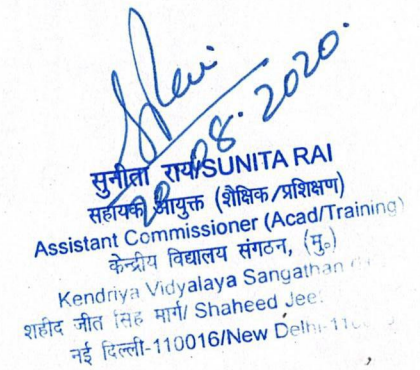 08.2020.
सुनीता राय/SUNITA RAI
सहायक आयुक्त (शैक्षिक/प्रशिक्षण)
Assistant Commissioner (Acad/Training)
केन्द्रीय विद्यालय संगठन, (मु॰)
Kendriya Vidyalaya Sangathan
शहीद जीत सिंह मार्ग/ Shaheed Jee
नई दिल्ली-110016/New Delhi-110